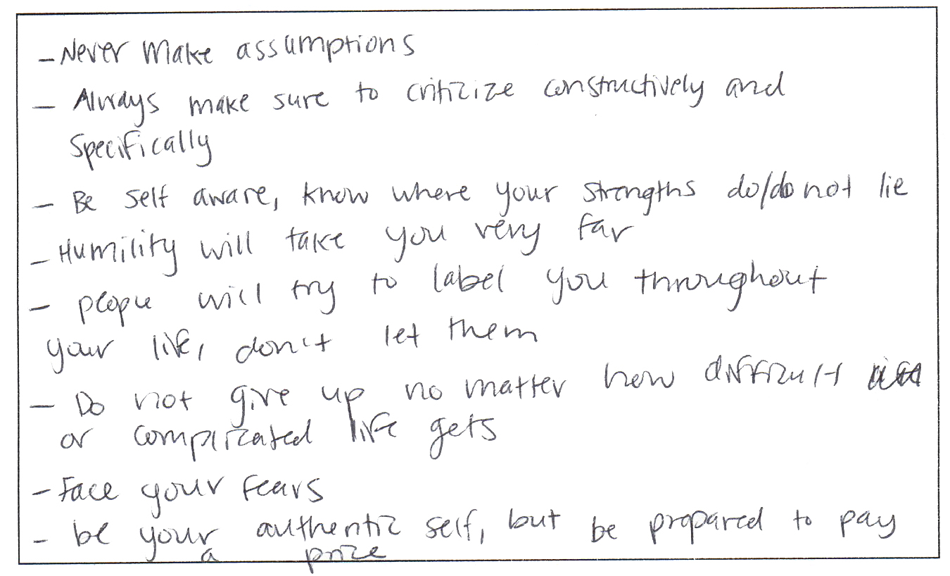 - Never Make assumptions
- Always make sure to criticize constructively and
specifically
- Be self aware, know where your strengths do/do not lie
- Humility will take you very far
- people will try to label you throughout
your life, don't let them
- Do not give up no matter how difficult
or complicated life gets
- Face your Fears
- be your authentic self, but be prepared to pay
a price